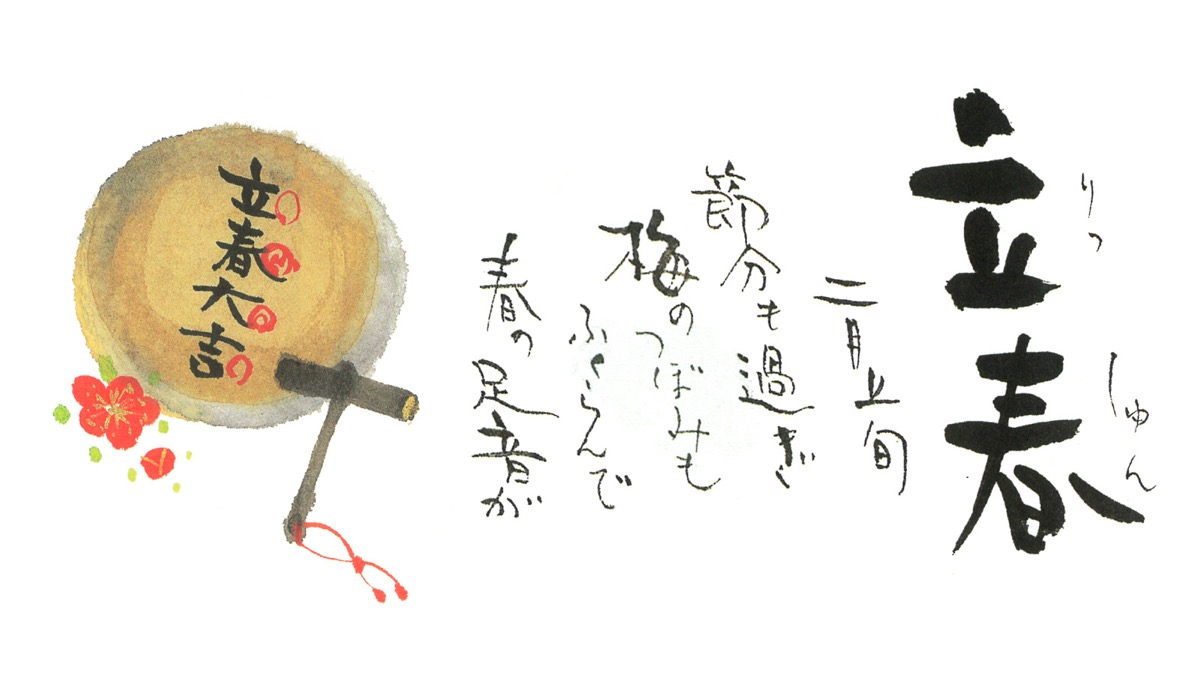 立春
りっしゅん
二月上旬
節分も過ぎ
梅のつぼみも
ふくらんで
春の足音が
立春大吉